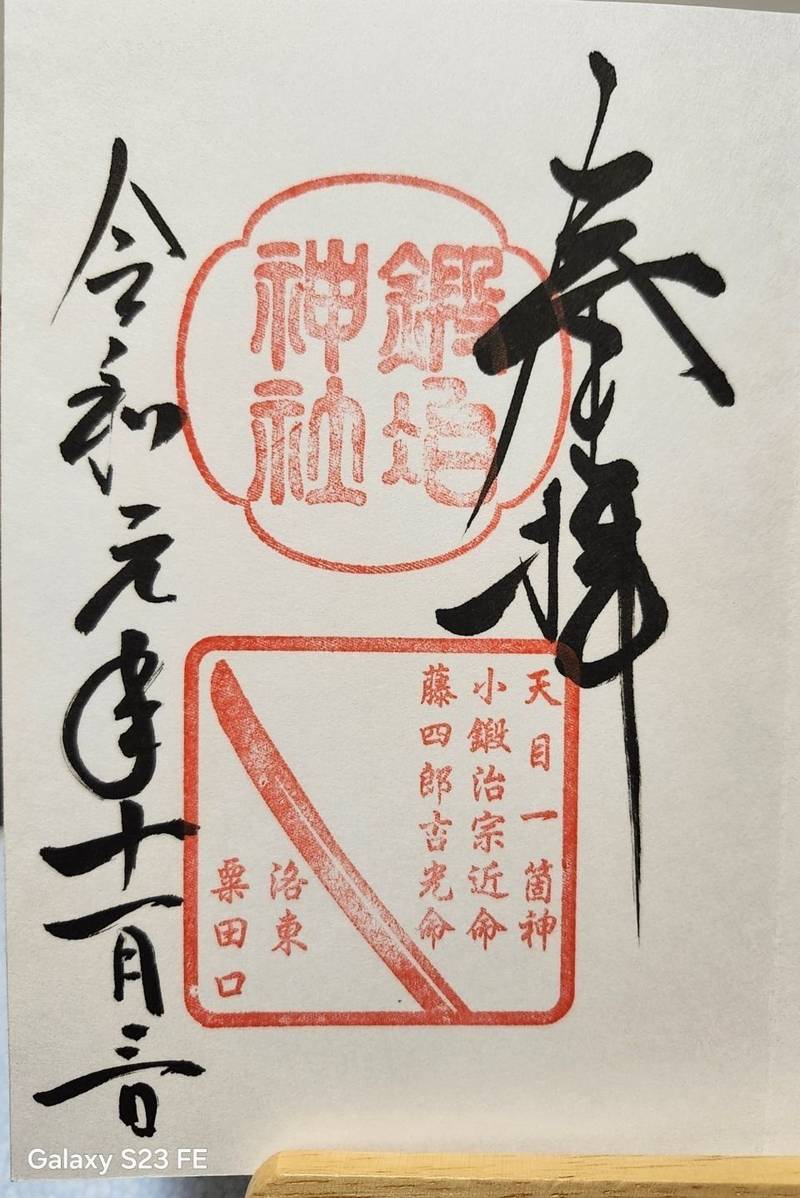 奉拝
鍛冶
神社
天目一箇神
小鍛治宗近命
藤四郎吉光命
洛東
粟田口
令和元年十一月三日
Galaxy S23 FE